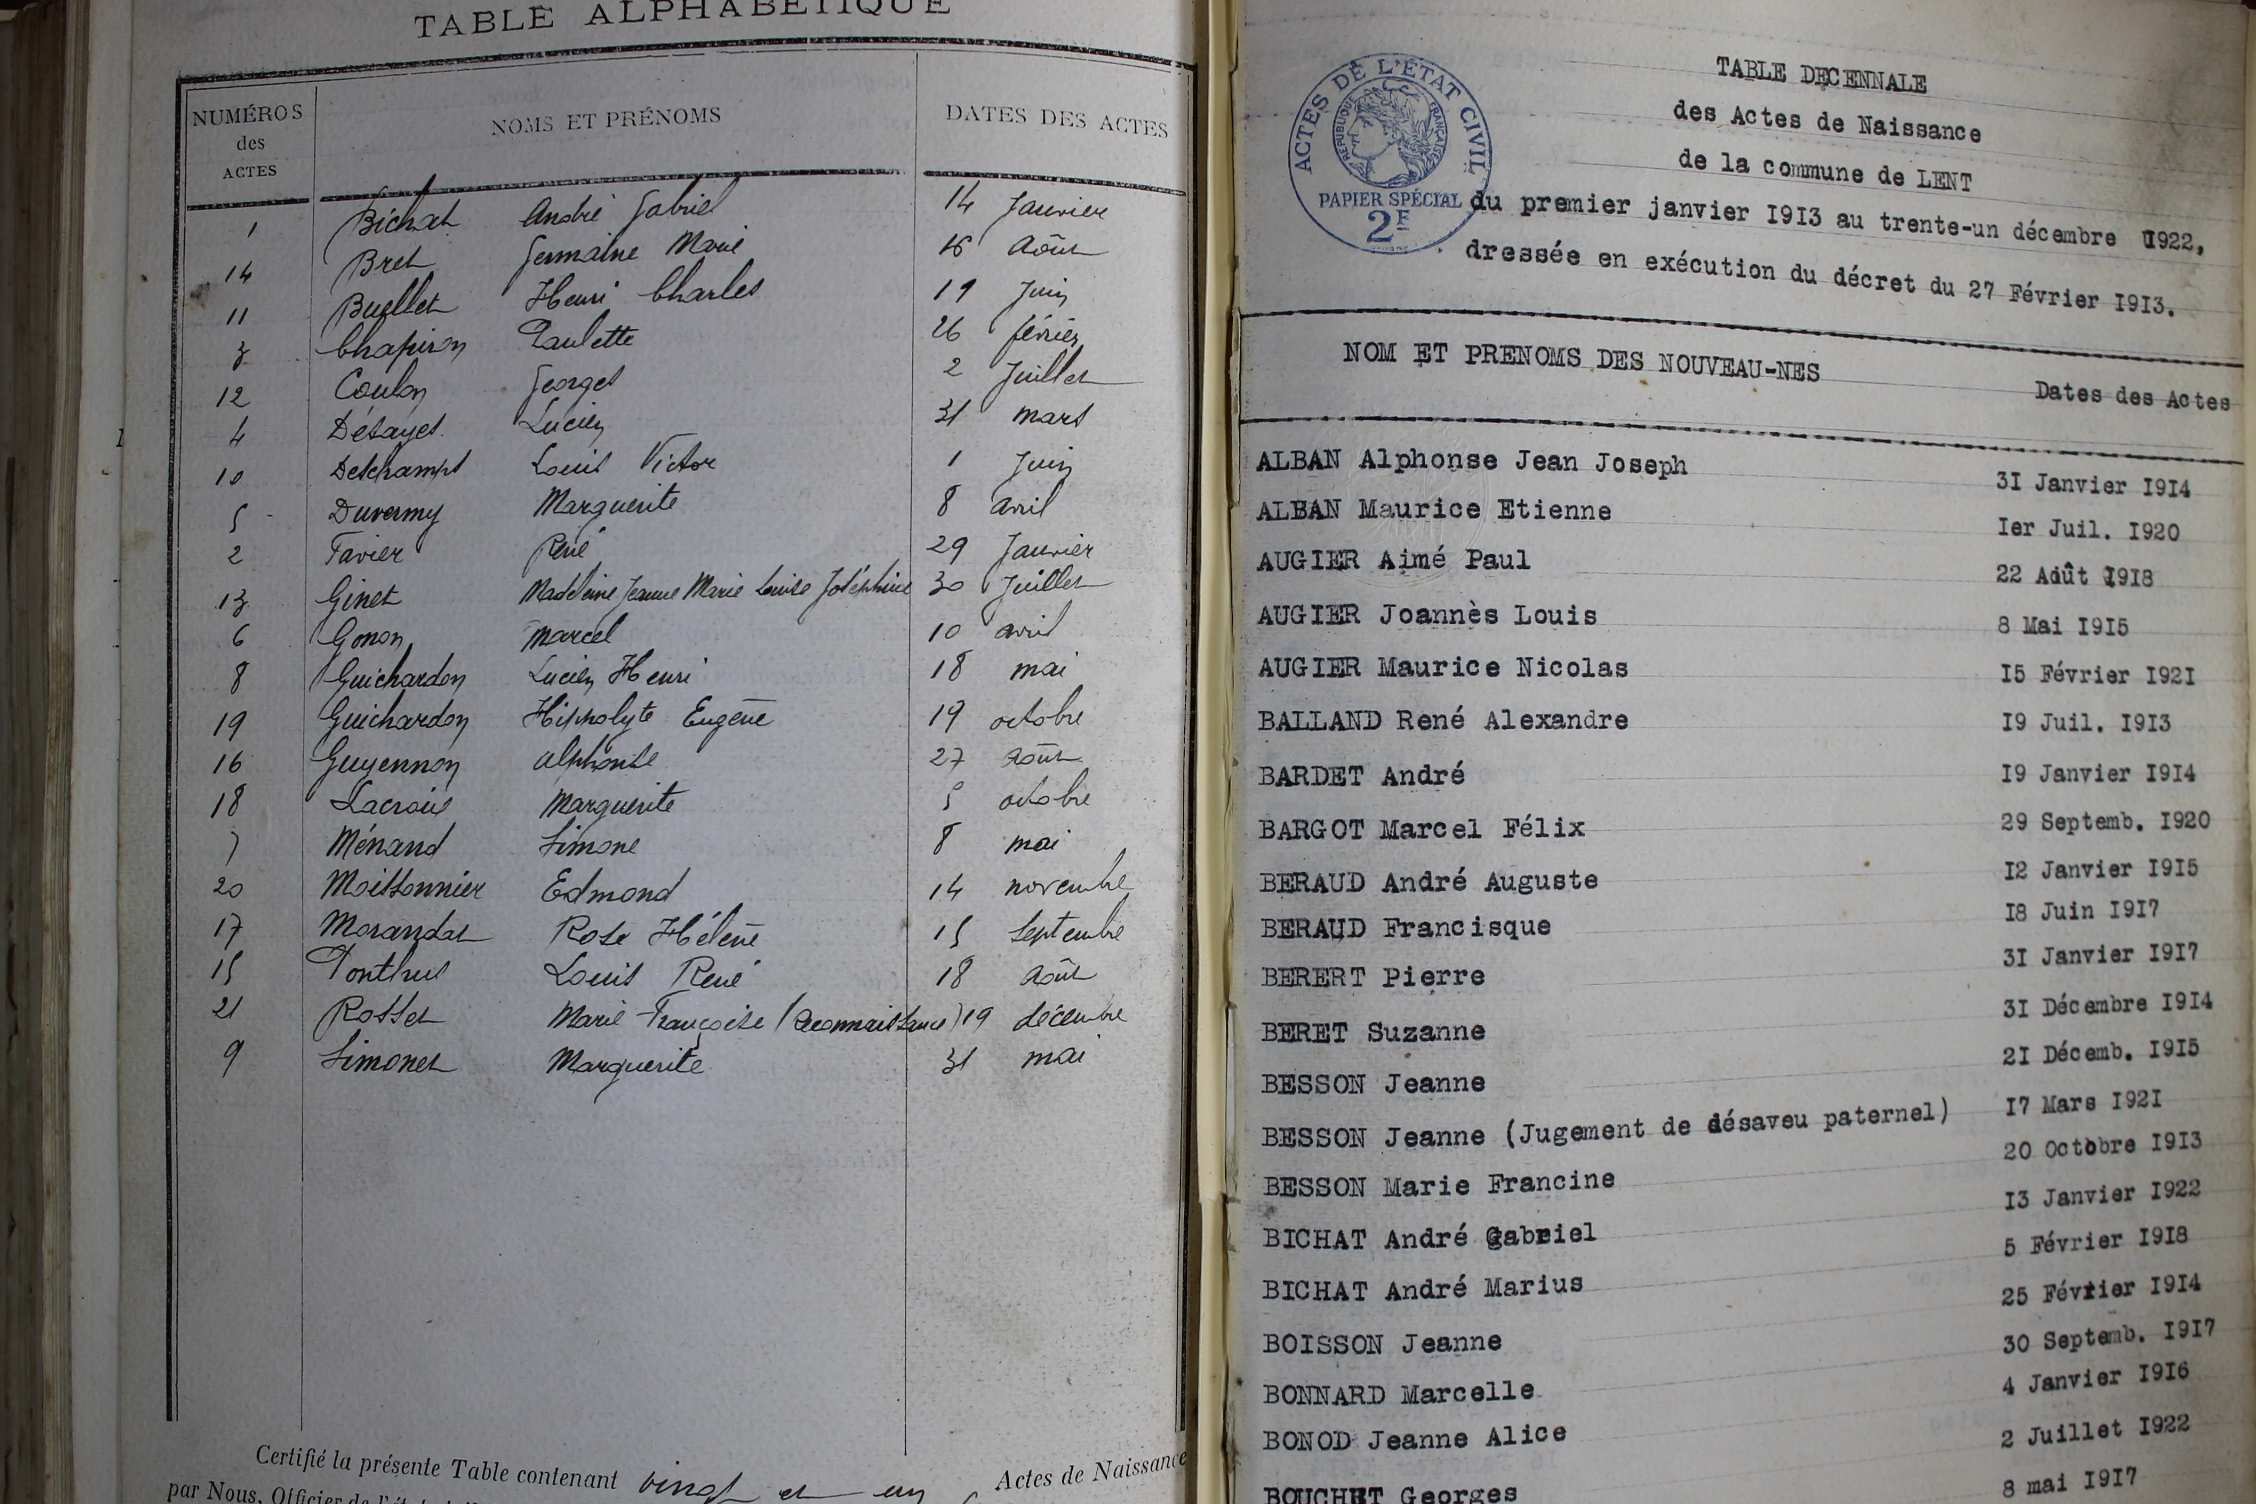 TABLE ALPHABÉTIQUE
NUMÉROS des ACTES NOMS ET PRÉNOMS DATES DES ACTES
1 Bichat André Gabriel 14 Janvier
14 Bret Germaine Marie 16 Août
11 Buellet Henri Charles 19 Juin
3 Chapiron Paulette 26 février
12 Coulon Georges 2 Juillet
4 Désayes Lucien 31 mars
10 Deschamps Louis Victor 1 Juin
5 Duvermy Marguerite 8 avril
2 Favier René 29 Janvier
13 Ginet Madeleine Jeanne Marie Louise Joséphine 30 Juillet
6 Gonon Marcel 10 avril
8 Guichardon Lucien Henri 18 mai
19 Guichardon Hippolyte Eugène 19 octobre
16 Guyennon Alphonse 27 août
18 Lacroix Marguerite 5 octobre
7 Ménand Simone 8 mai
20 Moissonnier Edmond 14 novembre
17 Morandat Rose Hélène 15 Septembre
15 Ponthus Louis René 18 août
21 Rosset Marie Françoise (Reconnaissance) 19 décembre
9 Simonet Marguerite 31 mai
Certifié la présente Table contenant vingt et un Actes de Naissance
par Nous, Officier de l'état
ACTES DE L'ÉTAT CIVIL
RÉPUBLIQUE FRANÇAISE
PAPIER SPÉCIAL
2F
TABLE DECENNALE
des Actes de Naissance
de la commune de LENT
du premier janvier I9I3 au trente-un décembre I922,
dressée en exécution du décret du 27 Février I9I3.
NOM ET PRENOMS DES NOUVEAU-NES Dates des Actes
ALBAN Alphonse Jean Joseph 3I Janvier I9I4
ALBAN Maurice Etienne Ier Juil. I920
AUGIER Aimé Paul 22 Août I9I8
AUGIER Joannès Louis 8 Mai I9I5
AUGIER Maurice Nicolas I5 Février I92I
BALLAND René Alexandre I9 Juil. I9I3
BARDET André I9 Janvier I9I4
BARGOT Marcel Félix 29 Septemb. I920
BERAUD André Auguste I2 Janvier I9I5
BERAUD Francisque I8 Juin I9I7
BERERT Pierre 3I Janvier I9I7
BERET Suzanne 3I Décembre I9I4
BESSON Jeanne 2I Décemb. I9I5
BESSON Jeanne (Jugement de désaveu paternel) I7 Mars I92I
BESSON Marie Francine 20 Octobre I9I3
BICHAT André Gabriel I3 Janvier I922
BICHAT André Marius 5 Février I9I8
BOISSON Jeanne 25 Février I9I4
BONNARD Marcelle 30 Septemb. I9I7
BONOD Jeanne Alice 4 Janvier I9I6
BOUCHET Georges 2 Juillet I922
8 mai I9I7